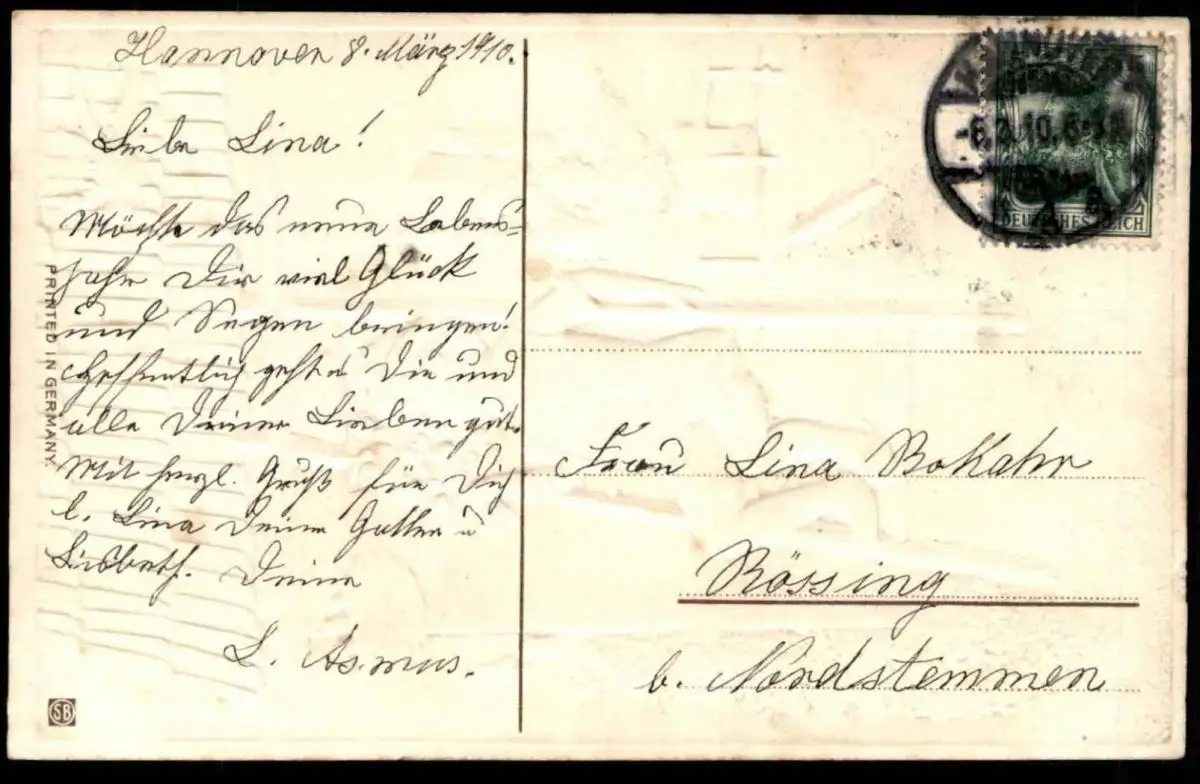 Hannover 8. März 1910.
Liebe Lina!
Möchte das neue Lebens-
jahr Dir viel Glück
und Segen bringen!
Hoffentlich geht es Dir und
alle Deinen Lieben gut.
Mit herzl. Gruß für Dich
l. Lina Deinen Gatten u
Lisbeth. Deine
L. Asmus.
PRINTED IN GERMANY.
SB
DEUTSCHES REICH
Frau Lina BoKahr
Rössing
b. Nordstemmen